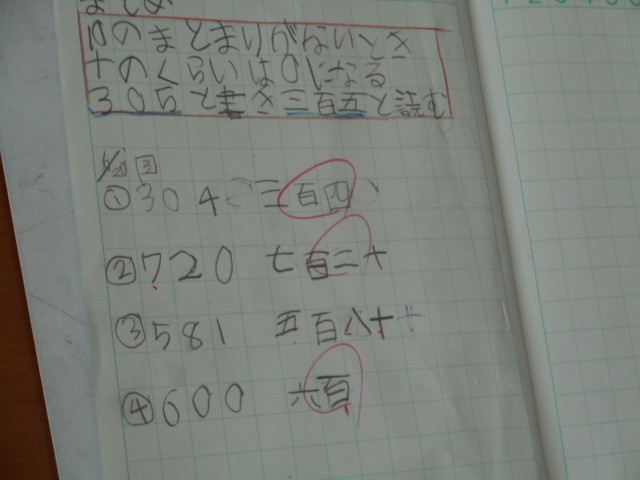 まとめ
10のまとまりがないとき
十のくらいは0になる
305とまき三百五と読む
3
①304 三百四
②720 七百二十
③581 五百八十
④600 六百